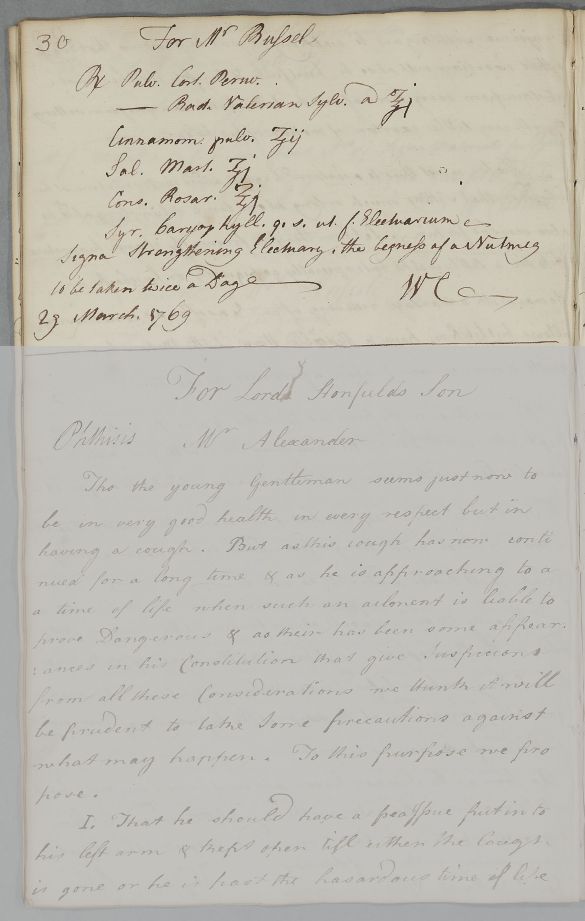 30 For Mr Russel
℞ Pulv. Cort. Peruv.
— Rad. Valerian Sylv. a ℥j
Cinnamom. pulv. ʒij
Sal. Mart. ʒj
Cons. Rosar. ℥j
Syr. Caryophyll. q. s. ut f. Electuarium
Signa Strengthening Electuary, the bigness of a Nutmeg
to be taken twice a Day
WC
29 March. 1769
For Lord Stonfields Son
Phthisis Mr Alexander
Tho the young Gentleman seems just now to
be in very good health in every respect but in
having a cough. But as this cough has now conti
nued for a long time & as he is approaching to a
a time of life when such an ailment is liable to
prove Dangerous & as their has been some appear:
:ances in his Constitution that give Suspicions
from all these Considerations we think it will
be prudent to take Some precautions against
what may happen. To this purpose we pro
pose.
I. That he should have a pea Issue put in to
his left arm & kept open till either the Cough
is gone or he is past the hasardous time of life